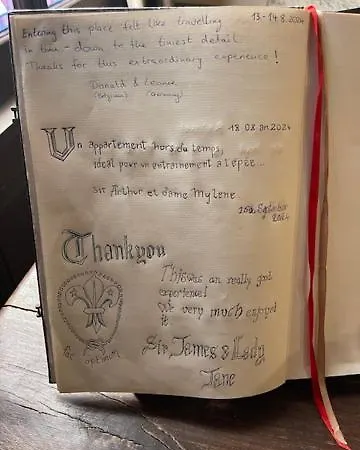 13-14.8.2024
Entering this place felt like travelling
in time - down to the tiniest detail.
Thanks for this extraordinary experience!
Donald & Leonie
(Belgium) (Germany)
18.08.2024
Un appartement hors du temps,
idéal pour un entrainement a l'épée...
Sir Arthur et dame Mylene
September
2024
Thankyou
This was an really good
experience!
We very much enjoyed
it
Sir James & Lady
Jane